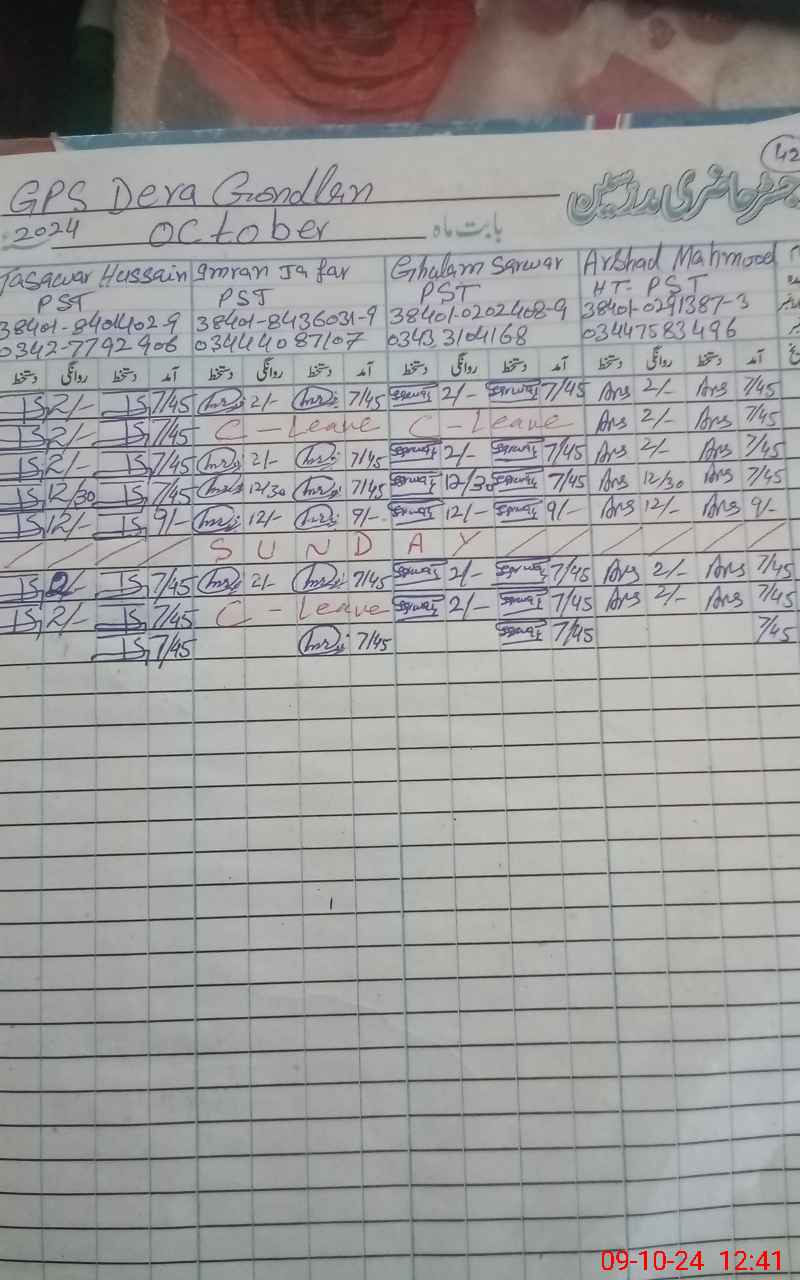 42
GPS Dera Gondlan رجسٹر حاضری مدرسین
2024 October بابت ماہ
Tasawar Hussain Imran Jafar Ghulam Sarwar Arshad Mahmood
PST PST PST HT- PST
38401-8401402-9 38401-8436031-9 38401-0202408-9 38401-0291387-3
0342-7792906 03444087107 0343 3104168 03447583496
دستخط روانگی دستخط آمد دستخط روانگی دستخط آمد دستخط روانگی دستخط آمد دستخط روانگی دستخط آمد
2/- 7/45 2/- 7/45 Sarwar 2/- Sarwar 7/45 Ars 2/- Ars 7/45
2/- 7/45 C - Leave C - Leave Ars 2/- Ars 7/45
2/- 7/45 2/- 7/45 Sarwar 2/- Sarwar 7/45 Ars 2/- Ars 7/45
12/30 7/45 12/30 7/45 Sarwar 12/30 Sarwar 7/45 Ars 12/30 Ars 7/45
12/- 9/- 12/- 9/- Sarwar 12/- Sarwar 9/- Ars 12/- Ars 9/-
/ / / / S U N D A Y / / / / / /
2/- 7/45 2/- 7/45 Sarwar 2/- Sarwar 7/45 Ars 2/- Ars 7/45
2/- 7/45 C - Leave Sarwar 2/- Sarwar 7/45 Ars 2/- Ars 7/45
7/45 7/45 Sarwar 7/45 7/45
09-10-24 12:41